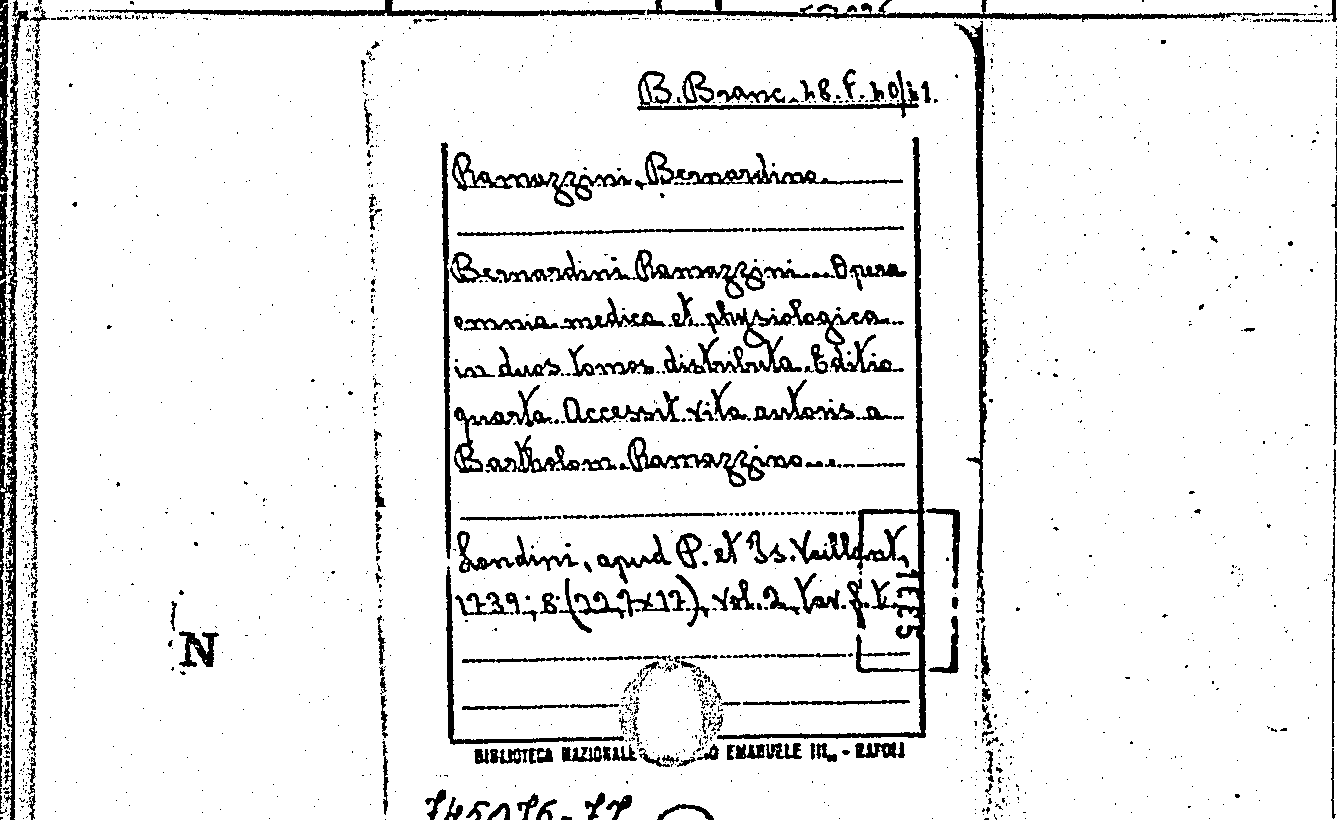 B. Branc. 48. F. 40/41.
Ramazzini, Bernardino.
Bernardini Ramazzini... Opera
omnia medica et physiologica
in duos tomos distributa. Editio
quarta. Accessit vita autoris a
Bartholom. Ramazzino...
Londini, apud P. et Is. Vaillant,
1739; 8° (22,7x17), vol. 2, tav. f. t.
N
BIBLIOTECA NAZIONALE EMANUELE III„ - NAPOLI
745076-77